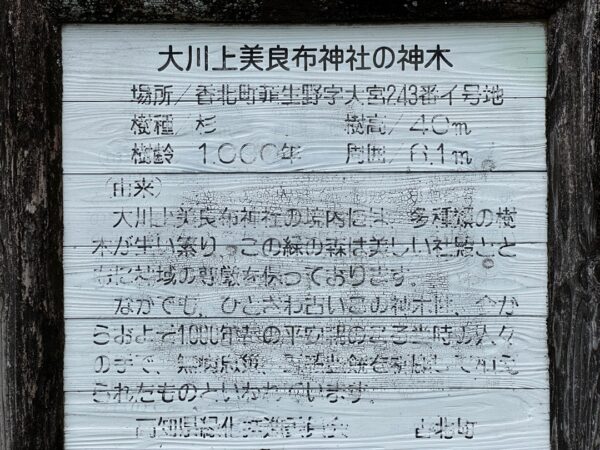 大川上美良布神社の神木
場所/香北町韮生野字大宮243番イ号地
樹種/杉 樹高/40m
樹齢 1.000年 周囲/6.1m
(由来)
大川上美良布神社の境内には、多種類の樹
木が生い繁り、この緑の森は美しい社殿とと
もに社域の尊厳を保っております。
なかでも、ひときわ古いこの神木は、今か
らおよそ1000年前の平安朝のころ当時の人々
の手で、
られたものといわれています。
高知県緑化推進委員会 香北町